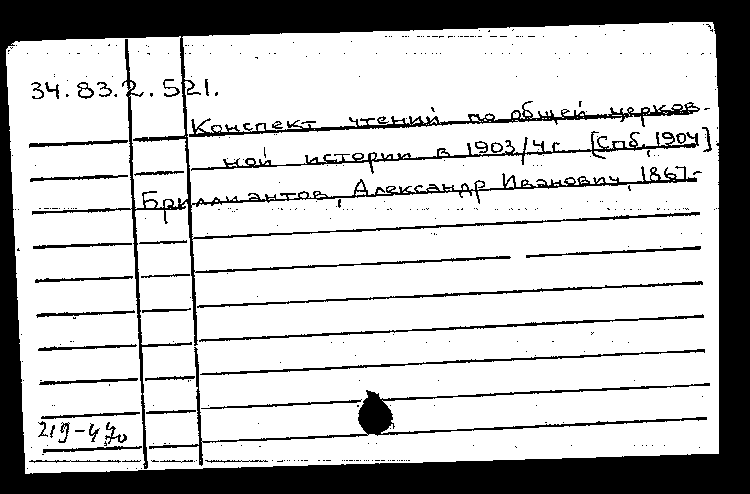 34.83.2.521.
Конспект чтений по общей церков-
ной истории в 1903/4 г. [Спб, 1904].
Бриллиантов, Александр Иванович, 1867-
219-470